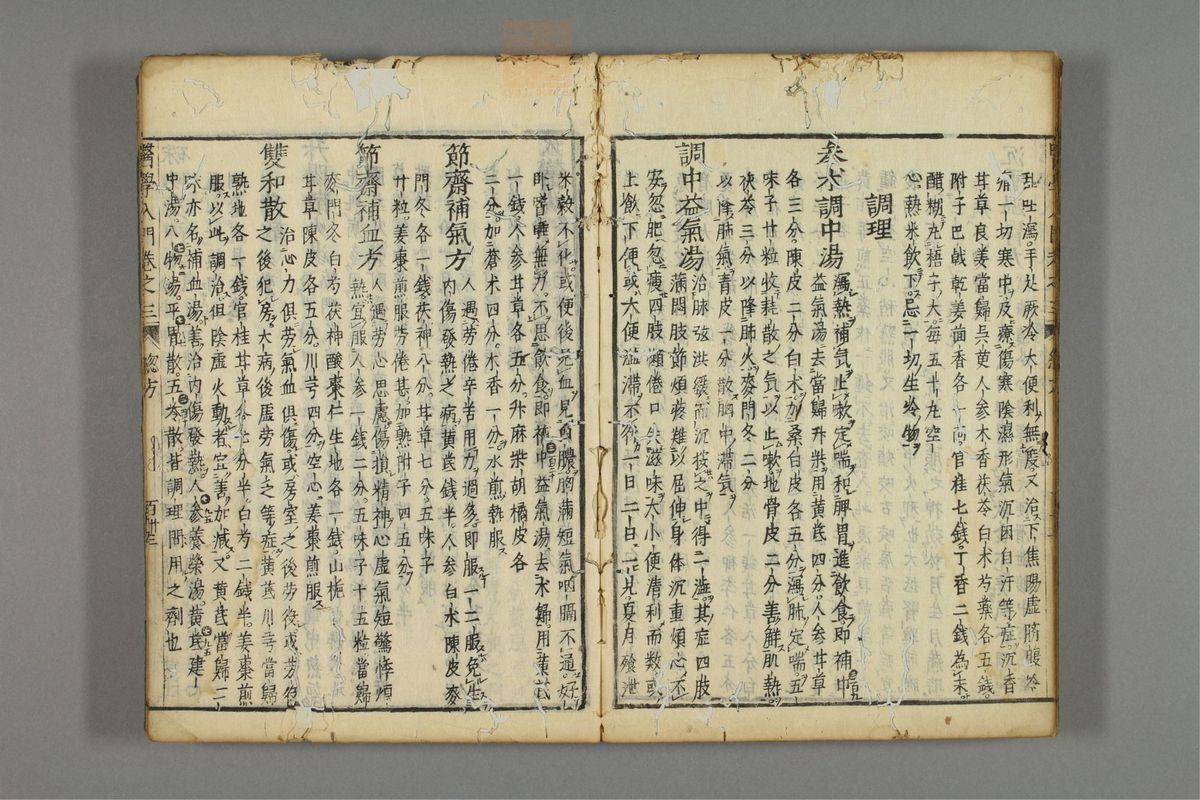 乱吐瀉手足厥冷大便利無度又治下焦陽虚臍腹冷
痛一切寒中皮療傷寒陰濕形氣沉困自汗等症沉香
甘草良姜當歸呉茰人参木香茯苓白术芍藥各五錢
附子巴戟乾姜茴香各一両官桂七錢丁香二錢為末
醋糊丸梧子大毎五十丸空
心熱米飲下忌一切生冷物
調理
参术調中湯
瀉熱補氣止嗽定喘和脾胃進飲食即補中
益氣湯去當歸升柴用黄芪四分人参甘草
各三分陳皮二分白术加桑白皮各五分瀉肺定喘五
味子廿粒收耗散之気以止嗽地骨皮二分善觧肌熱
茯苓三分以降肺火麥門冬二分
以除肺氣青皮一分散胸中滞気
調中益氣湯
治脉弦洪緩而沉按之中得一澁其症四肢
滿悶肢節煩疼難以屈伸身体沉重煩心不
安忽肥忽瘦四肢懶倦口失滋味大小便清利而数或
上飲下便或大便澁滞不行一日二日一見夏月飧泄
米穀不化或便後見血見白膿胸滿短氣咽膈不通好
卧嗜唾無力不思飲食即補中益氣湯去术歸用黄芪
一錢人参甘草各五分升麻柴胡橘皮各
二分加蒼术四分木香一分水煎熱服
節齋補氣方
人遇労倦辛苦用力過多即服一二服免生
内傷發熱之病黄芪錢半人参白术陳皮麥
門冬各一錢茯神八分甘草七分五味子
廿粒姜棗煎服労倦甚加熟附子四五分
節齋補血方
人遇労心思慮傷損精神心虚氣短驚悸煩
熱宜服人参一錢二分五味子十五粒當歸
麥門冬白芍茯神酸棗仁生地各一錢山梔
甘草陳皮各五分川芎四分空心姜棗煎服
雙和散
治心力俱労氣血俱傷或房室之後労役或労役
之後犯房大病後虚労氣乏等症黄芪川芎當歸
熟地各一錢官桂甘草各七分半白芍二錢半姜棗煎
服以此調治但陰虚火動者宜善加减又黄芪當歸二
味亦名補血湯善治内傷發熱人参養榮湯黄芪建
中湯八物湯平胃散五苓散皆調理間用之劑也
醫學入門卷之三
總方